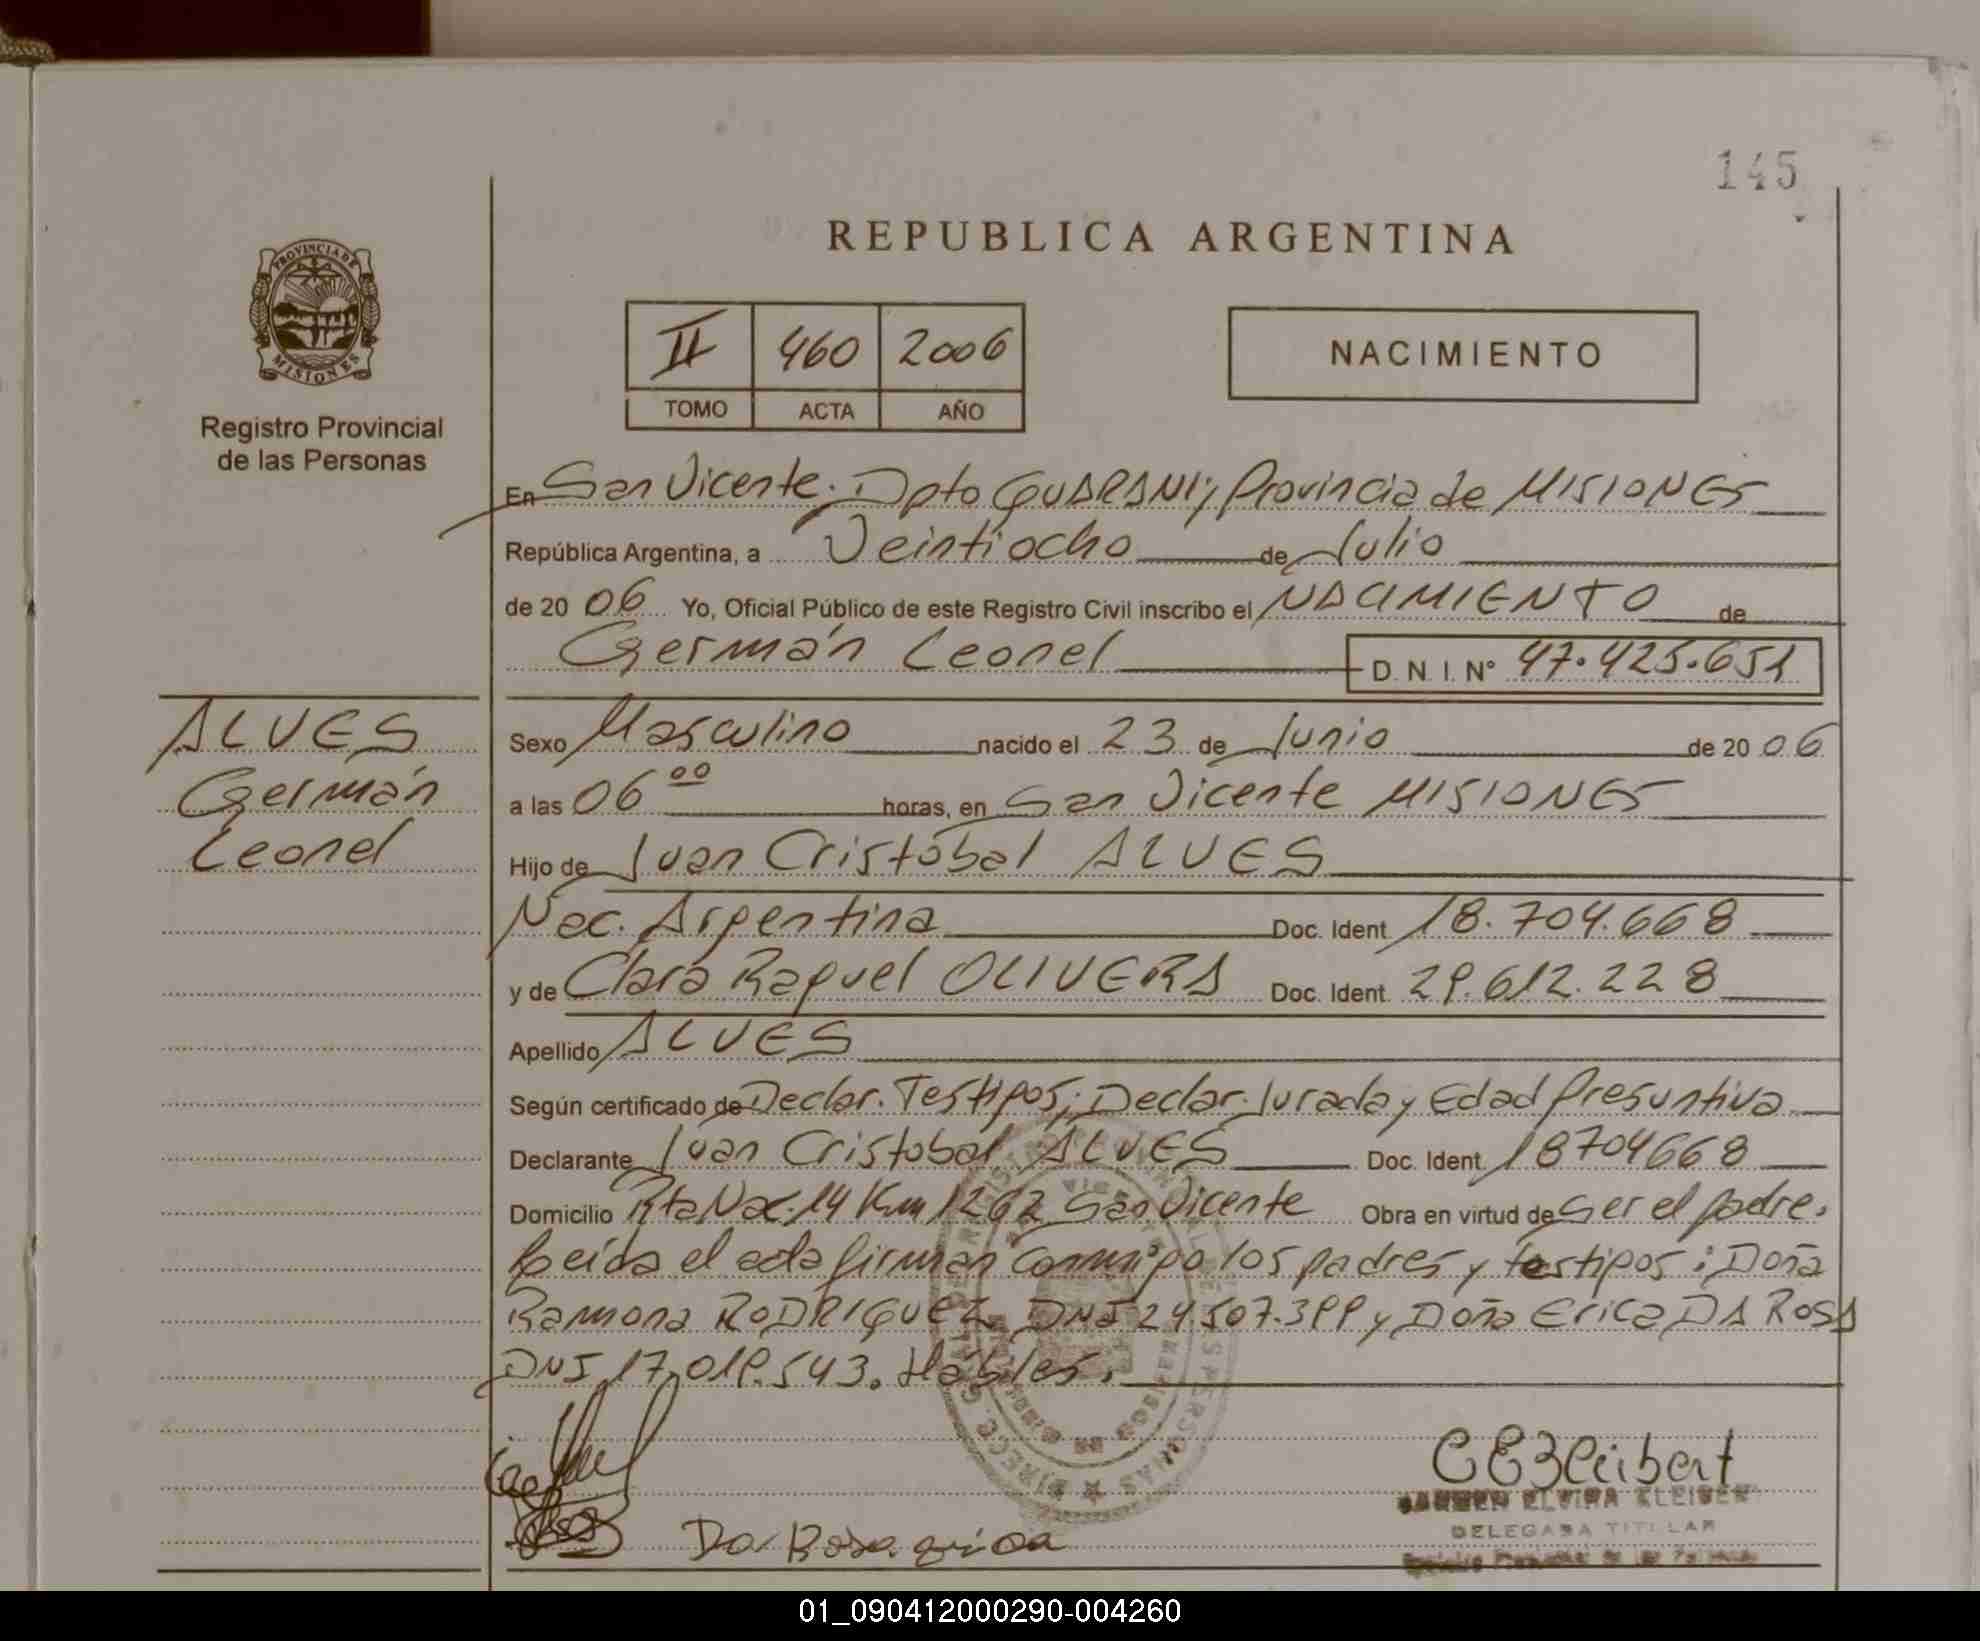 145
REPUBLICA ARGENTINA
PROVINCIA DE
MISIONES
Registro Provincial
de las Personas
II 460 2006
TOMO ACTA AÑO
NACIMIENTO
En San Vicente. Dpto GUARANI; Provincia de MISIONES
República Argentina, a Veintiocho de Julio
de 20 06 Yo, Oficial Público de este Registro Civil inscribo el NACIMIENTO de
Germán Leonel D.N.I. Nº 47.425.651
ALVES
Germán
Leonel
Sexo Masculino nacido el 23 de Junio de 20 06
a las 06 00 horas, en San Vicente MISIONES
Hijo de Juan Cristóbal ALVES
Nac. Argentina Doc. Ident. 18.704.668
y de Clara Raquel OLIVERA Doc. Ident. 29.612.228
Apellido ALVES
Según certificado de Declar. Testigos; Declar. Jurada y Edad Presuntiva
Declarante Juan Cristobal ALVES Doc. Ident. 18704668
Domicilio Rta Nac. 14 Km 1262 San Vicente Obra en virtud de Ser el padre.
Leída el acta firman conmigo los padres y testigos: Doña
Ramona RODRIGUEZ DNI 24.507.399 y Doña Erica DA ROSA
DNI 17.019.543. Hábiles.
CEKleibert
CARMEN ELVIRA KLEIBER
DELEGADA TITULAR
Registro Provincial de las Personas
Da Rosa
01_090412000290-004260